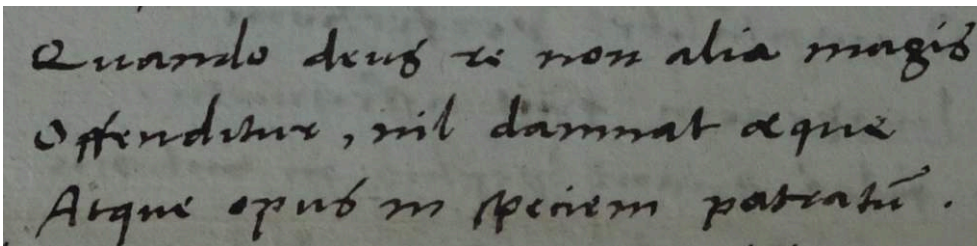 Quando deus re non alia magis
Offenditur, nil damnat aeque
Atque opus in speciem patratū.